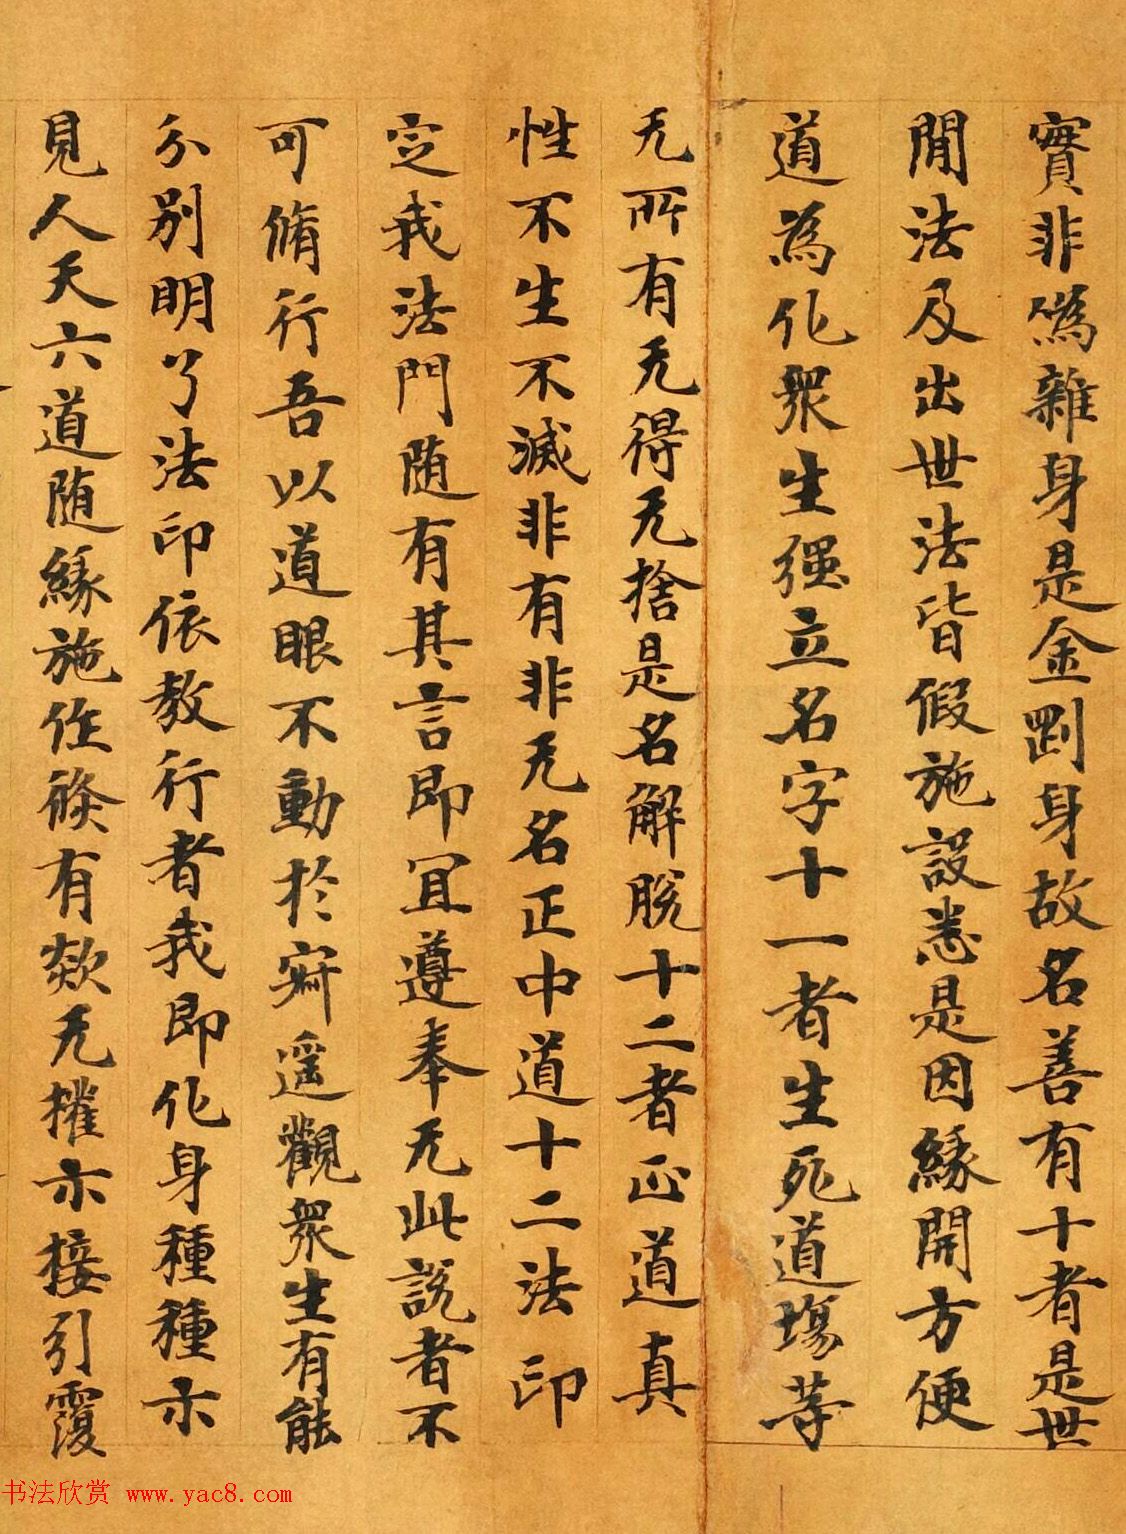 實非僞雜身是金剛身故名善有十者是世
間法及出世法皆假施設悉是因緣開方便
道為化衆生强立名字十一者生死道塲等
无所有无得无捨是名解脫十二者正道真
性不生不滅非有非无名正中道十二法印
定我法門随有其言即宜遵奉无此說者不
可脩行吾以道眼不動於寂遥觀衆生有能
分別明了法印依教行者我即化身種種示
見人天六道随緣施作倏有欻无擁示接引覆
书法欣赏 www.yac8.com